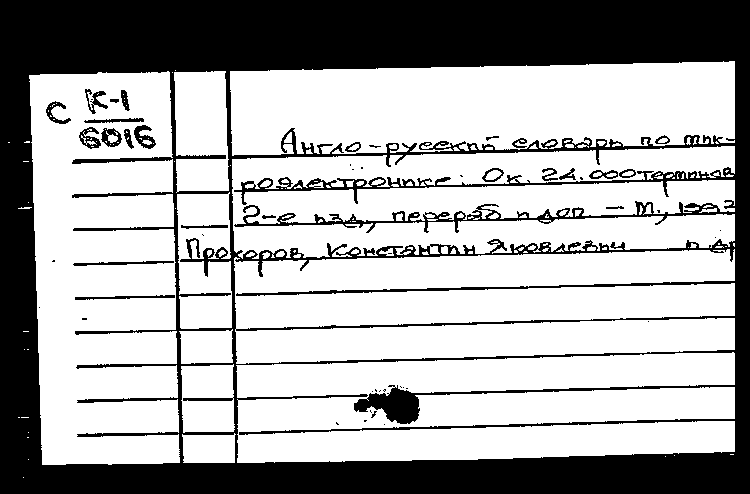 С К-1
6016
Англо-русский словарь по мик-
роэлектронике: Ок. 24.000 терминов
2-е изд., перераб и доп — М., 1993
Прохоров, Константин Яковлевич и др